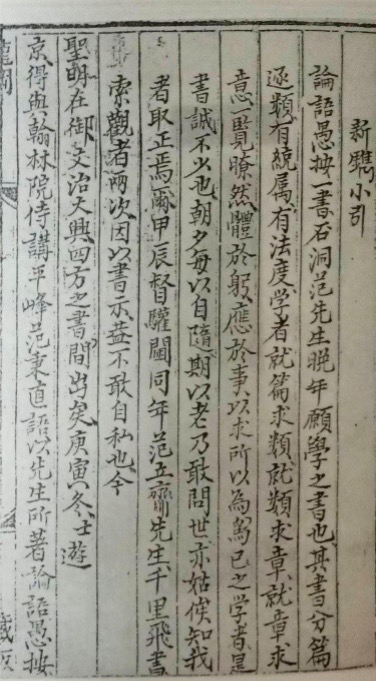 新鐫小引
論語愚按一書石洞范先生晚年願學之書也其書分篇
逐類有統属有法度学者就篇求類就類求章就章求
意一覽瞭然體於躬應於事以求所以為為己之学者是
書誠不少也朝夕每以自隨期以老乃敢問世亦姑俟知我
者取正焉爾甲辰督驩閫同年范立齋先生千里飛書
索觀者兩次因以書示葢不敢自私也今
聖明在御文治大興四方之書間出矣庚寅冬士遊
京得與翰林院侍講平峰范東直語以先生所著論語愚按
藏板